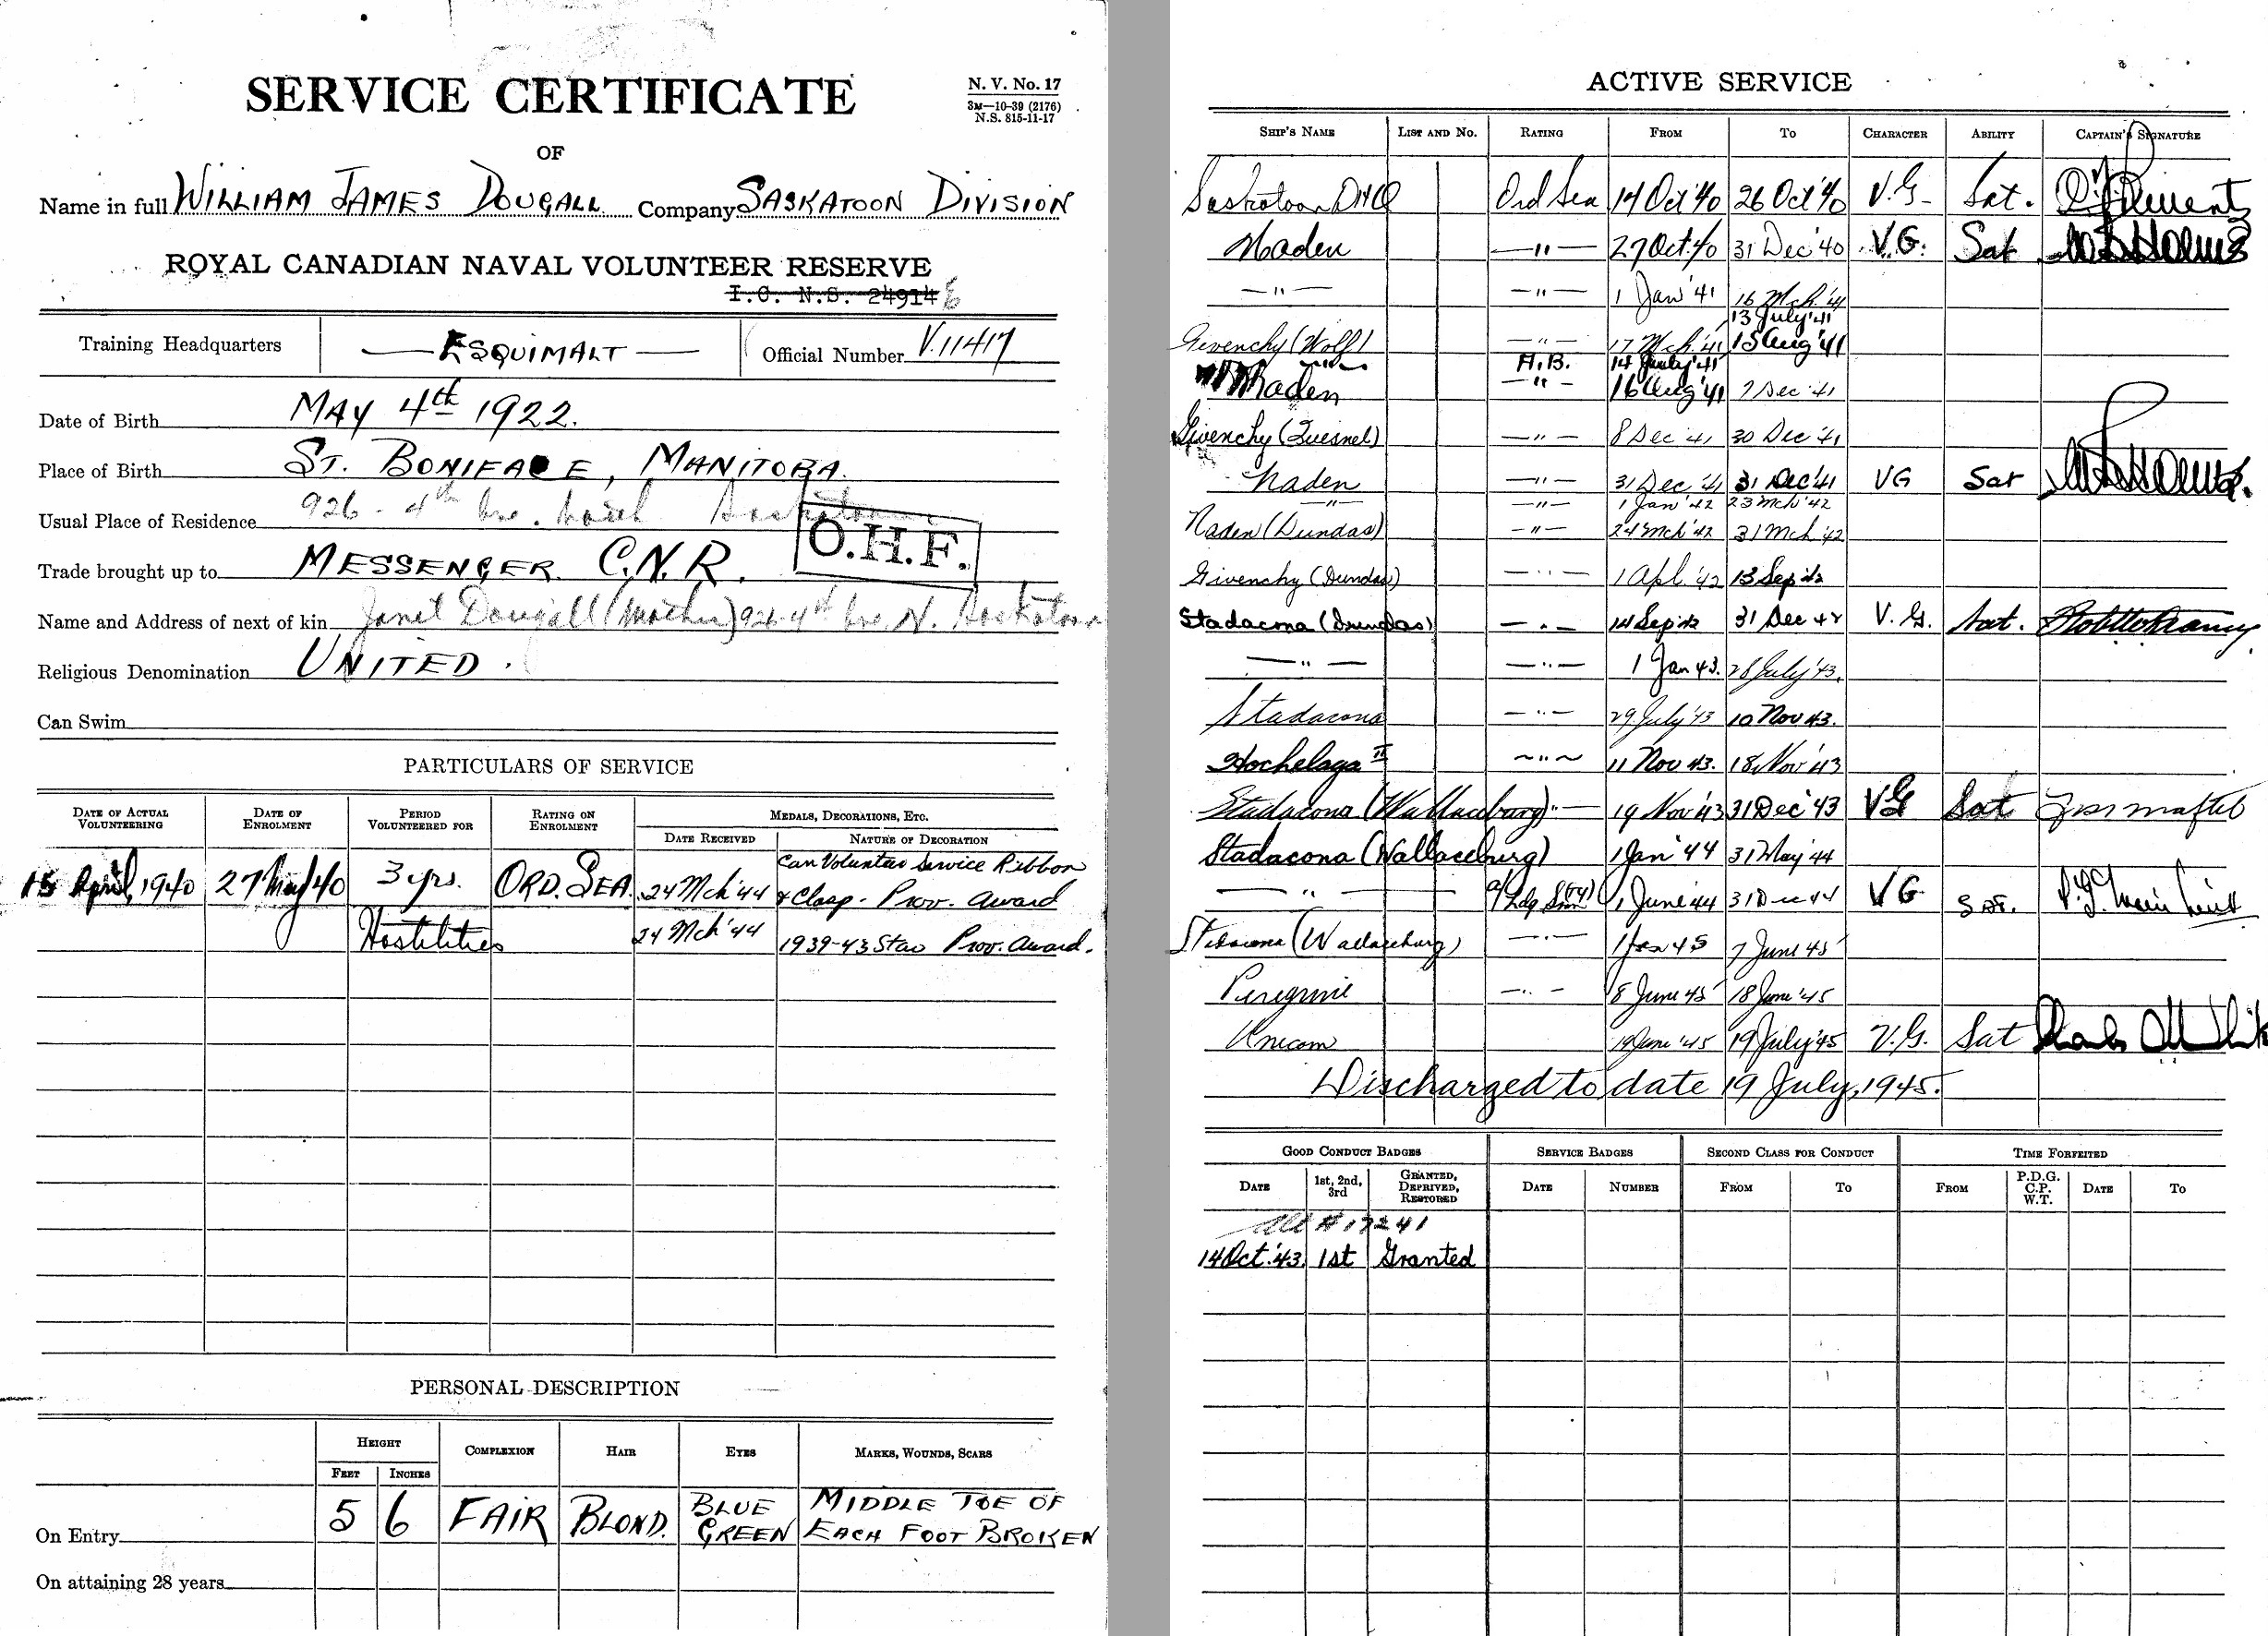 SERVICE CERTIFICATE
N. V. No. 17
3M—10-39 (2176)
N.S. 815-11-17
OF
Name in full WILLIAM JAMES DOUGALL Company SASKATOON DIVISION
ROYAL CANADIAN NAVAL VOLUNTEER RESERVE
I.C. N.S. 24914
Training Headquarters — ESQUIMALT — Official Number V.11417
Date of Birth MAY 4th 1922.
Place of Birth ST. BONIFACE, MANITOBA.
Usual Place of Residence 926 - 4th Ave. North Saskatoon
O.H.F.
Trade brought up to MESSENGER C.N.R.
Name and Address of next of kin Janet Dougall (Mother) 926-4th Ave. N. Saskatoon
Religious Denomination UNITED.
Can Swim
PARTICULARS OF SERVICE
DATE OF ACTUAL VOLUNTEERING DATE OF ENROLMENT PERIOD VOLUNTEERED FOR RATING ON ENROLMENT MEDALS, DECORATIONS, ETC.
DATE RECEIVED NATURE OF DECORATION
Can Volunteer Service Ribbon
15 April, 1940 27 May 40 3 yrs. ORD. SEA. 24 Mch '44 & Clasp - Prov. Award
Hostilities 24 Mch '44 1939-43 Star Prov. Award.
PERSONAL DESCRIPTION
HEIGHT COMPLEXION HAIR EYES MARKS, WOUNDS, SCARS
FEET INCHES
On Entry 5 6 FAIR BLOND. BLUE GREEN MIDDLE TOE OF EACH FOOT BROKEN
On attaining 28 years
ACTIVE SERVICE
SHIP'S NAME LIST AND NO. RATING FROM TO CHARACTER ABILITY CAPTAIN'S SIGNATURE
Saskatoon DHQ Ord Sea 14 Oct '40 26 Oct '40 V.G- Sat.
Naden —"— 27 Oct '40 31 Dec '40 V.G. Sat
—"— —"— 1 Jan '41 16 Mch. '41
13 July '41
Givenchy (Wolf) —"— 17 Mch '41 15 Aug '41
A.B. 14 July '41
Naden —"— 16 Aug '41 7 Dec '41
Givenchy (Quesnel) —"— 8 Dec '41 30 Dec '41
Naden —"— 31 Dec '41 31 Dec '41 VG Sat
—"— —"— 1 Jan '42 23 Mch '42
Naden (Dundas) —"— 24 Mch '42 31 Mch '42
Givenchy (Dundas) —"— 1 Apl '42 13 Sep '42
Stadacona (Dundas) —"— 14 Sep '42 31 Dec 42 V.G. Sat.
—"— —"— 1 Jan 43. 28 July '43.
Stadacona —"— 29 July '43 10 Nov 43.
Hochelaga II —"— 11 Nov 43. 18 Nov '43
Stadacona (Wallaceburg) "— 19 Nov '43 31 Dec '43 VG Sat
Stadacona (Wallaceburg) 1 Jan '44 31 May '44
—"— A/Ldg Smn (Ty) 1 June '44 31 Dec 44 VG Sat.
Stadacona (Wallaceburg) —"— 1 Jan 45 7 June 45
Peregrine —"— 8 June 45 18 June '45
Unicorn 19 June '45 19 July '45 V.G. Sat
Discharged to date 19 July, 1945.
GOOD CONDUCT BADGES SERVICE BADGES SECOND CLASS FOR CONDUCT TIME FORFEITED
DATE 1st, 2nd, 3rd GRANTED, DEPRIVED, RESTORED DATE NUMBER FROM TO FROM P.D.G. C.P. W.T. DATE TO
# 17241
14 Oct. '43. 1st Granted